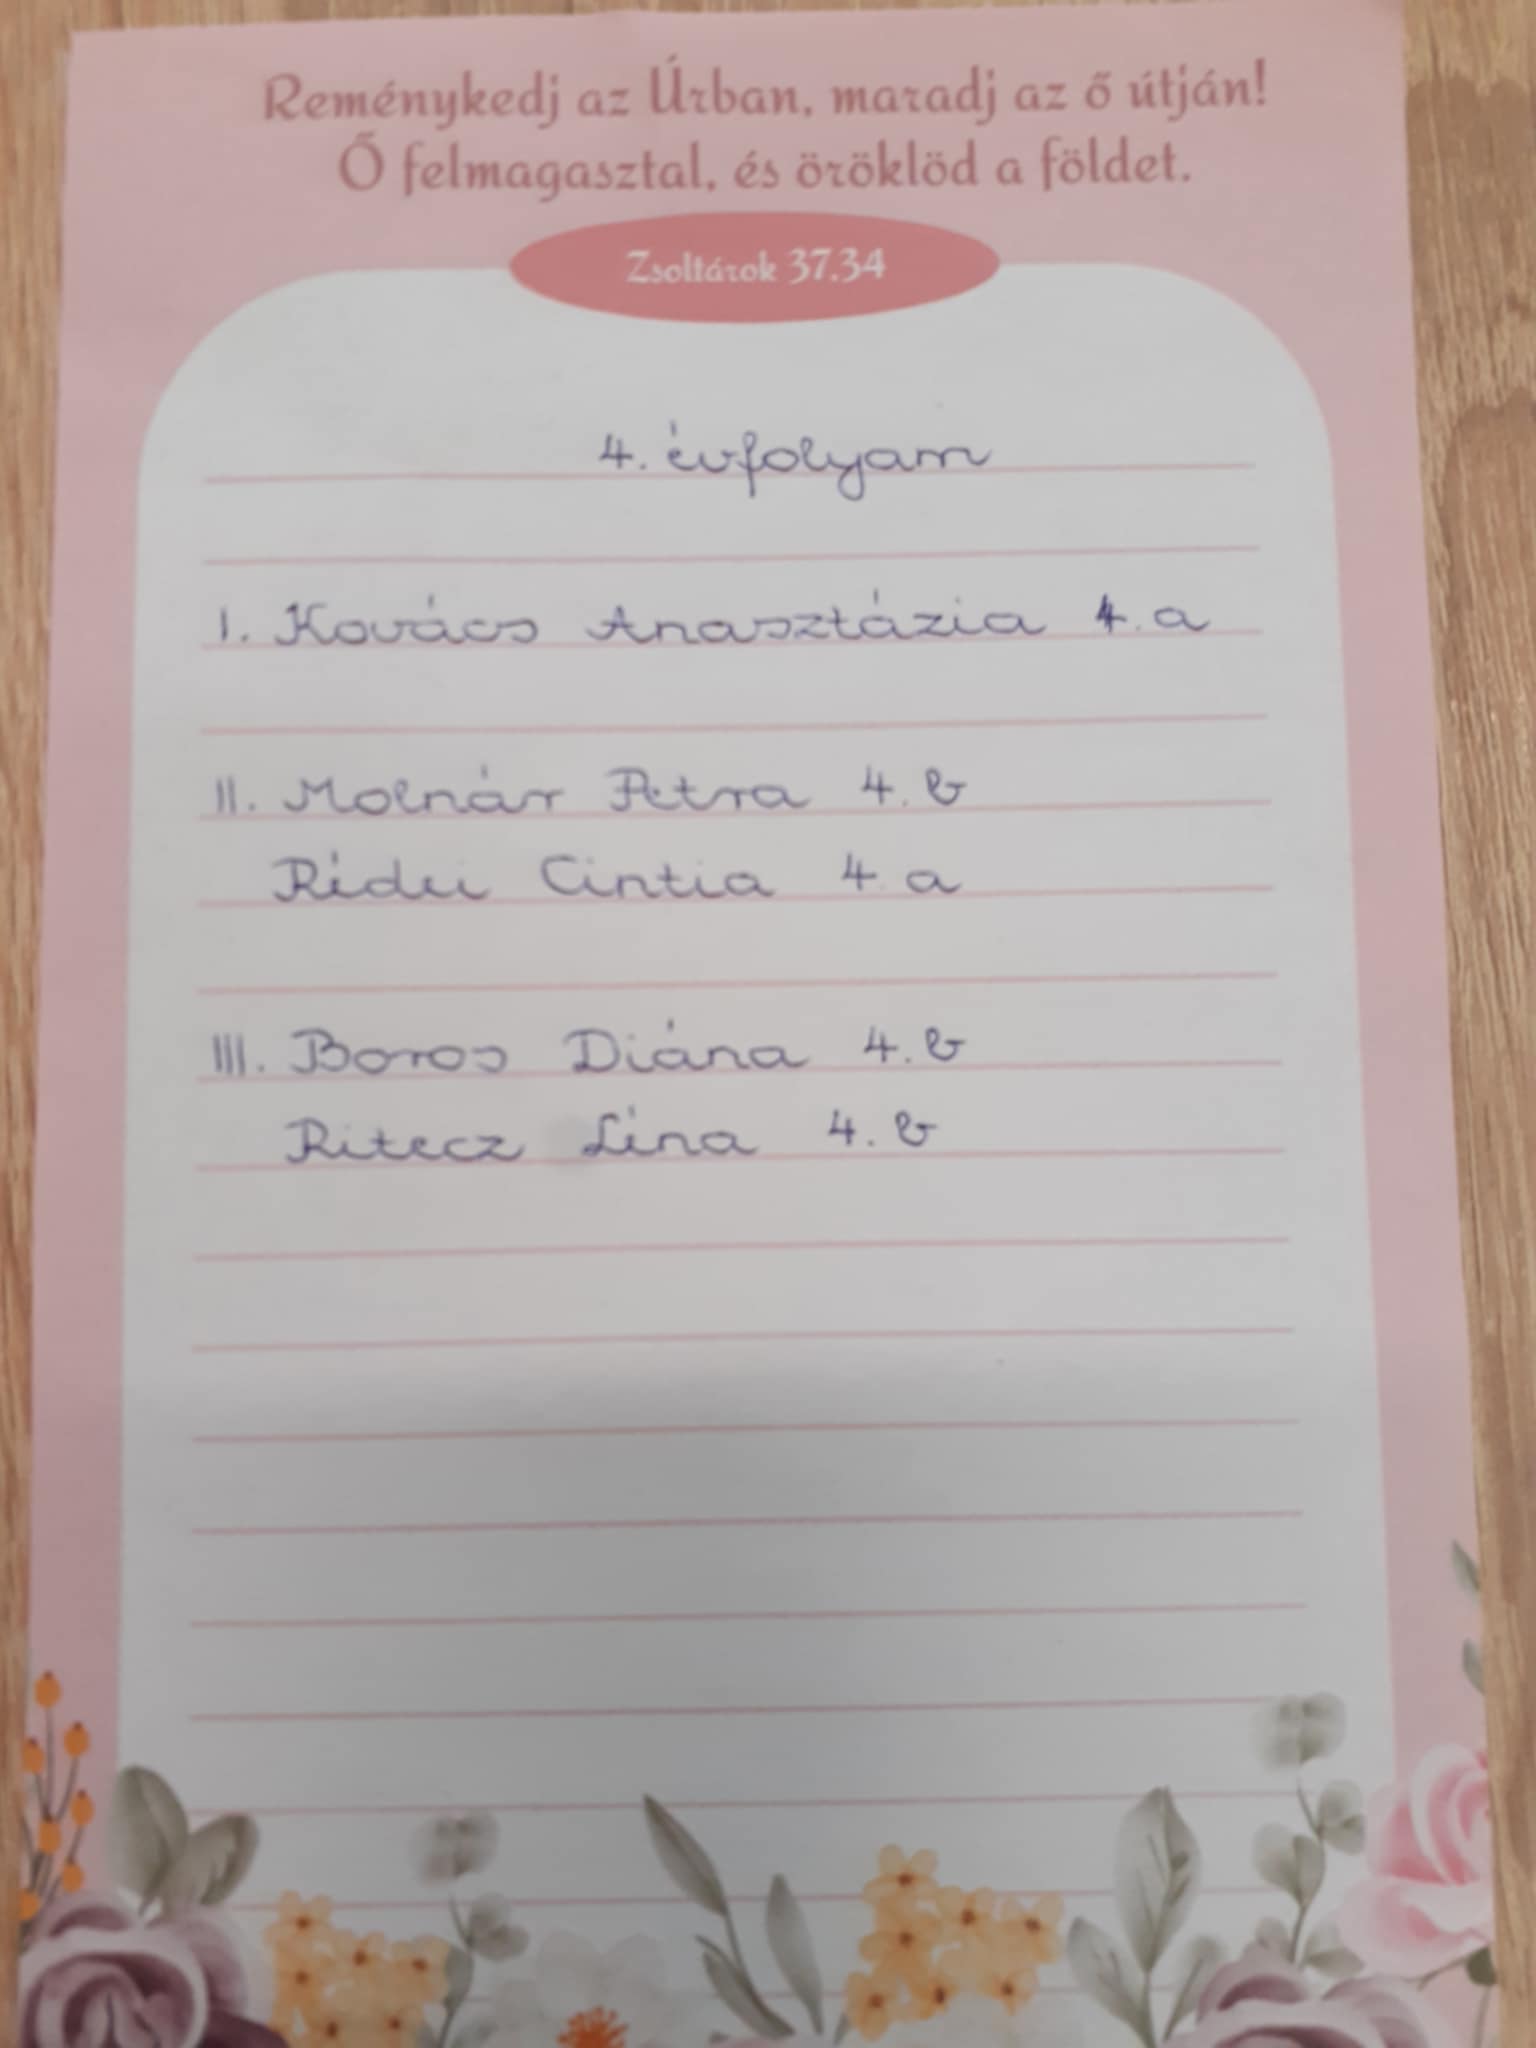 Reménykedj az Úrban, maradj az ő útján!
Ő felmagasztal, és öröklöd a földet.
Zsoltárok 37.34
4. évfolyam
I. Kovács Anasztázia 4. a
II. Molnár Petra 4. b
Rédei Cintia 4. a
III. Boros Diána 4. b
Ritecz Lina 4. b